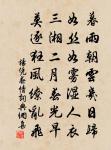 暮雨朝雲幾日歸
如絲如霧濕人衣
三湘二月春光早
莫逐狂風繚亂飛
楊凭春情詞典網書